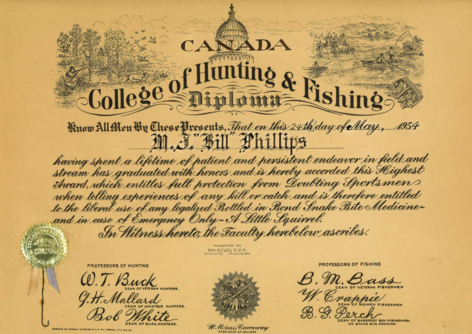 CANADA
College of Hunting & Fishing
Diploma
Know All Men By These Presents, That on this 24th day of May, 1954
M. J. "Bill" Phillips
having spent a lifetime of patient and persistent endeavor in field and
stream has graduated with honors and is hereby accorded this Highest
Award, which entitles full protection from Doubting Sportsmen
when telling experiences of any kill or catch and is therefore entitled
to the liberal use of any legalized Bottled in Bond Snake Bite Medicine
and in case of Emergency Only - A Little Squirrel.
In Witness hereto, the Faculty herebelow ascribes.
PRESENTED BY
PROFESSORS OF HUNTING
W. T. Buck
DEAN OF VETERAN HUNTERS.
G. H. Mallard
DEAN OF AMATEUR HUNTERS.
Bob White
PROFESSORS OF FISHING
B. M. Bass
DEAN OF VETERAN FISHERMEN
W. Crappie
B. G. Perch
DEAN OF BAREFOOT BOY FISHERMEN,
NO SNAKE BITE MEDICINE